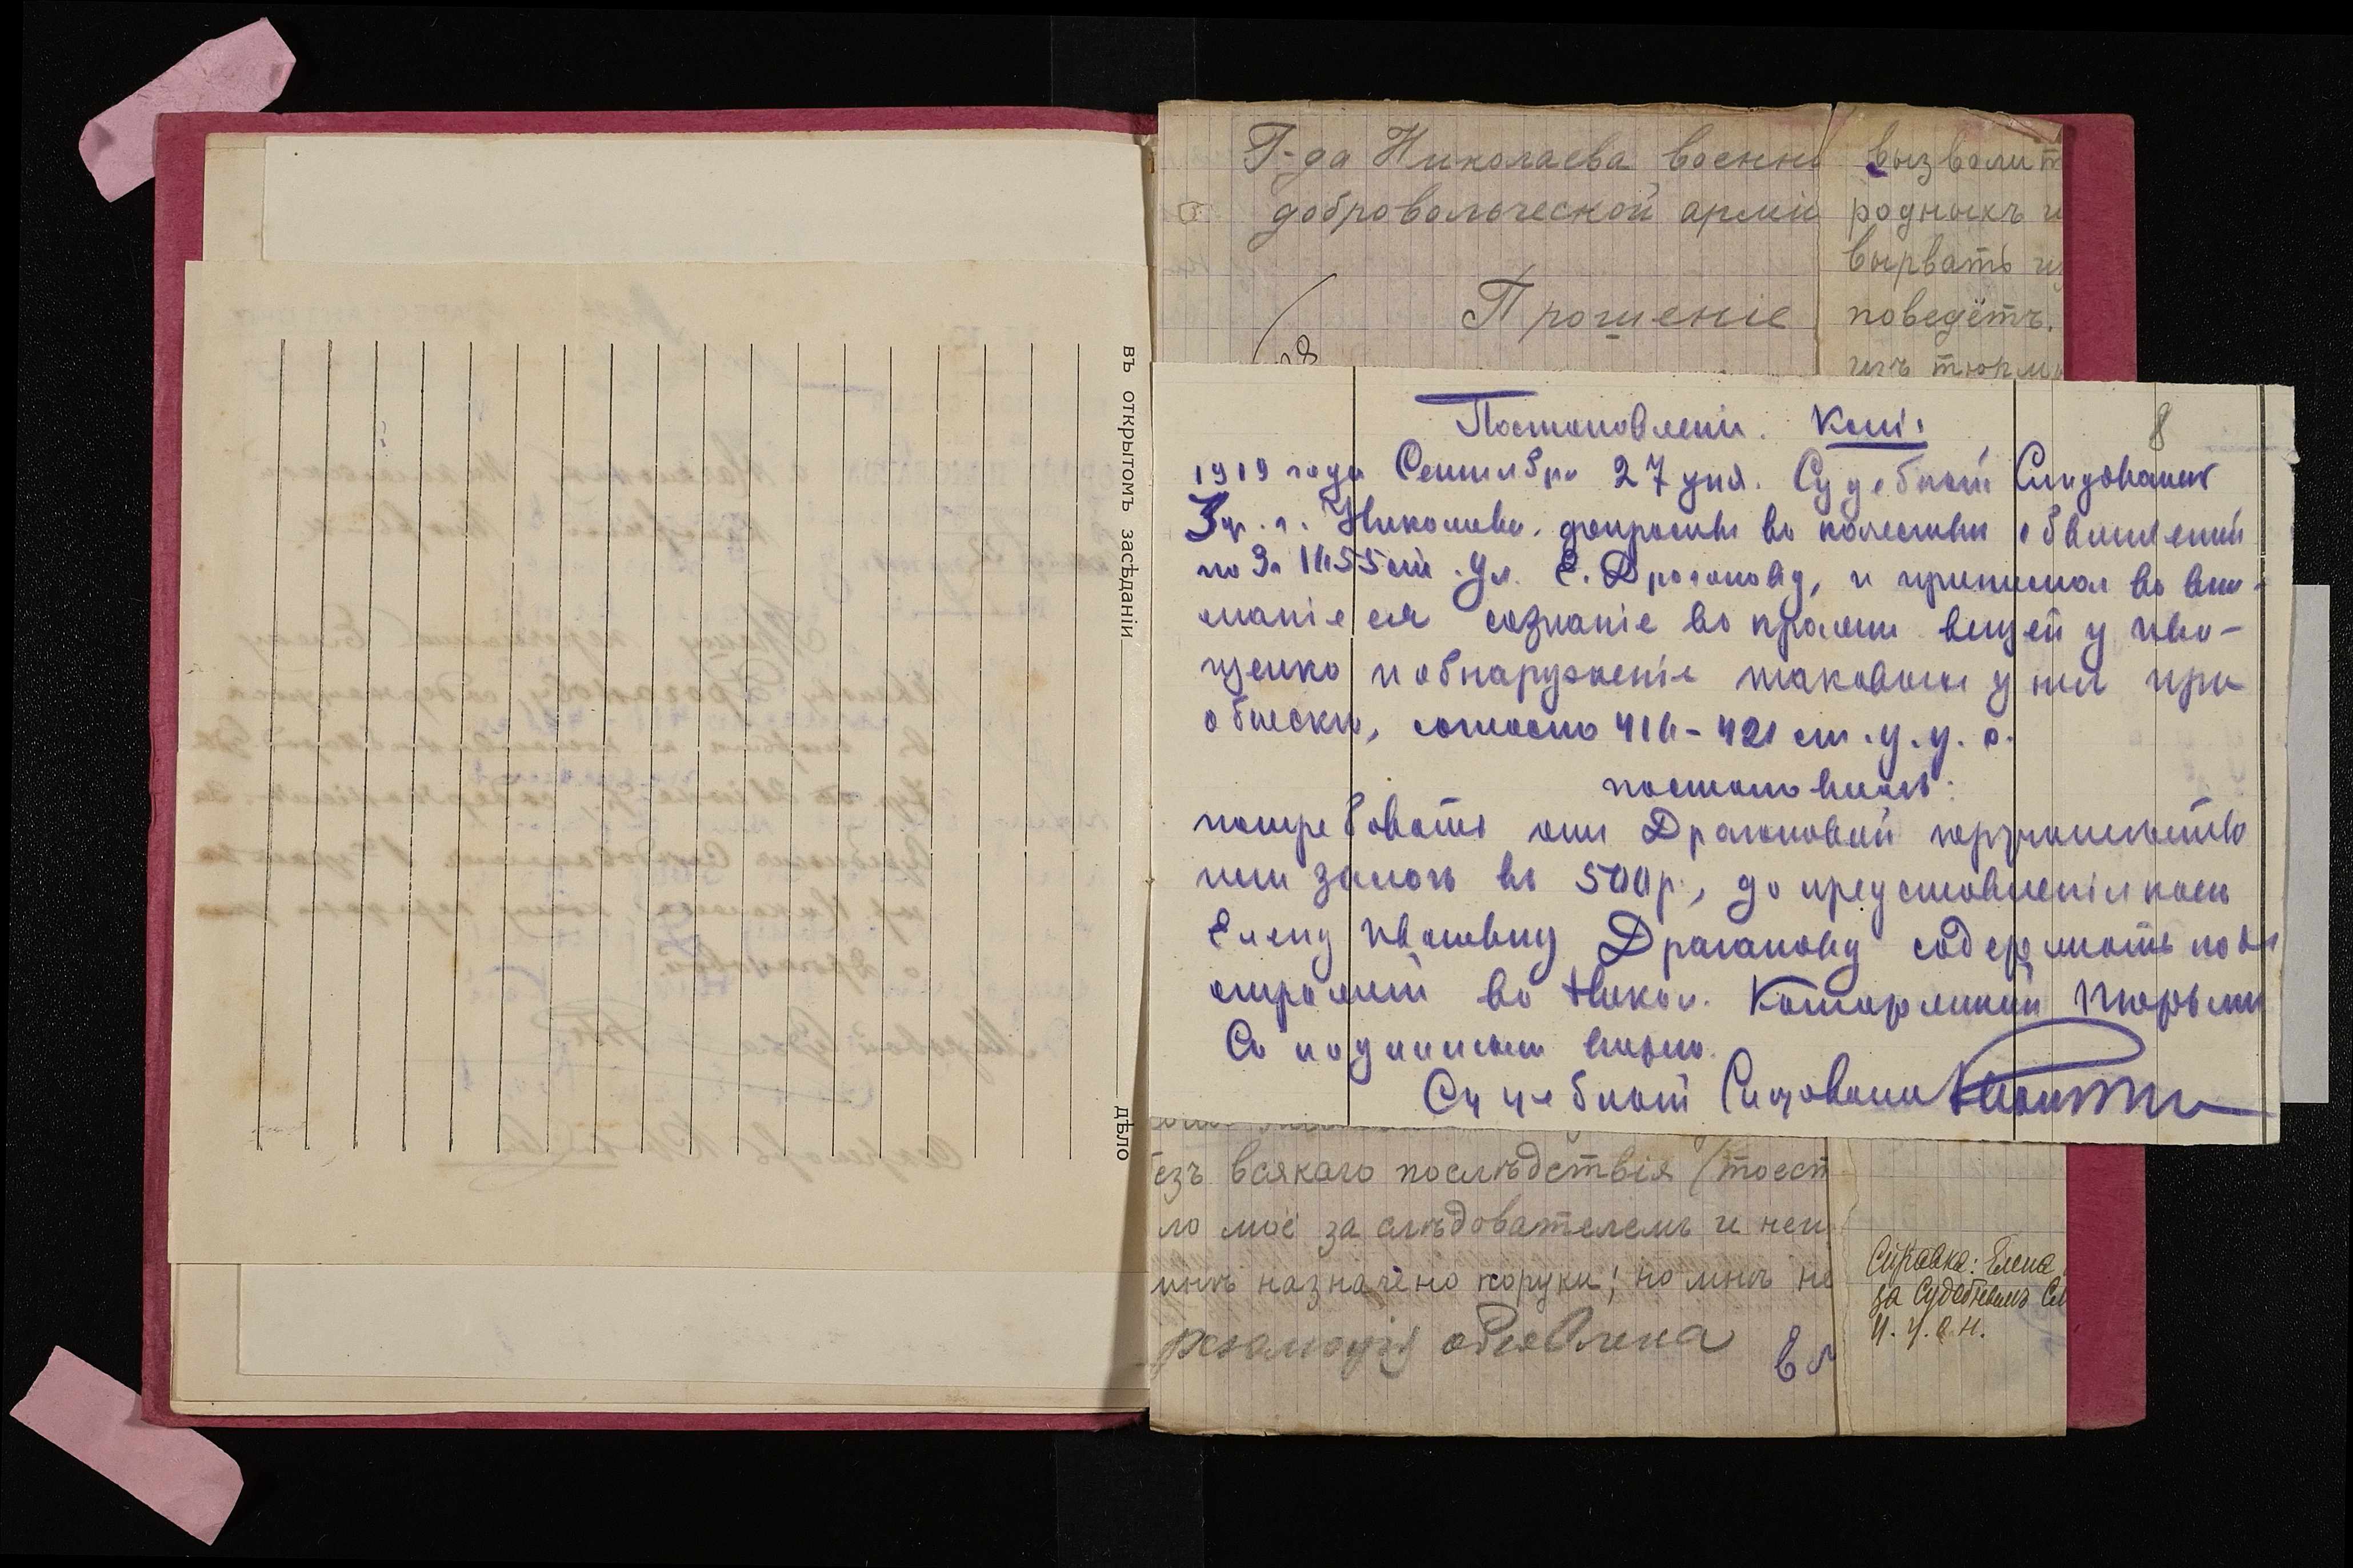 въ открытомъ засѣданіи
дѣло
Г-да Николаева военн
добровольческой армiи
Прошеніе
вызволит
родныхъ и
вырвать
поведётъ.
изъ тюрьм
8
Постановленіе. Копія
1919 года Сентября 27 дня. Судебный Слѣдователь
3 уч. г. Николаева, допросивъ въ качествѣ обвиняемой
по 3 ч 1655 ст. Ул. Е. Драганову, и принимая во вни-
маніе ея сознаніе въ кражѣ вещей у Иво-
щенко и обнаруженіе таковыхъ у нея при
обыскѣ, согласно 416-421 ст. у. у. с.
постановилъ:
потребовать отъ Драгановой поручительство
или залогъ въ 500 р., до представленія коего
Елену Ивановну Драганову содержать подъ
стражей въ Никол. Каторжной тюрьмѣ
Съ подлиннымъ вѣрно.
Судебный Слѣдователь
езъ всякаго послѣдствія (тоест
ло моё за слѣдователемъ и неи
мнѣ назначено поруки; но мнѣ не
резолюцiя объявлена
Справка: Елена
за Судебнымъ Сл